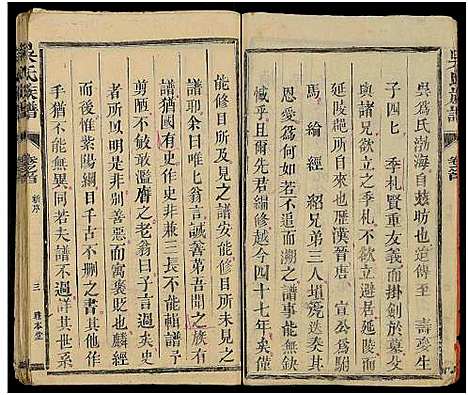 吳氏族譜
卷之首
吳爲氏渤海自蓺昉也遞傳至　壽夢生
子四　七　季札賢重友義而掛劍於墓父
與諸兄歛立之季札不受退居延陵而
延陵郡所自來也歷漢晉唐　宮公爲駙
馬　綸　經　紹兄弟三人塤箎迭奏其
恩愛爲何如而不進而溯之譜事能無
憾乎且爾先君繼修越今四十七年矣僅
能修目所及見之譜安能修目所未見之
譜耶余曰唯七翁言誠善弟吾聞之族有
譜猶國有史作史非兼三長不能其譜予
剪陋不敢濫膺之老翁曰子言過矣史
以明是非彰善惡而寓褒貶也麟經
後惟紫陽綱目千古不刪之書其他
手猶不能無異同若夫譜不過詳其世系
吳氏族譜
卷之首
新序
三
雍本堂